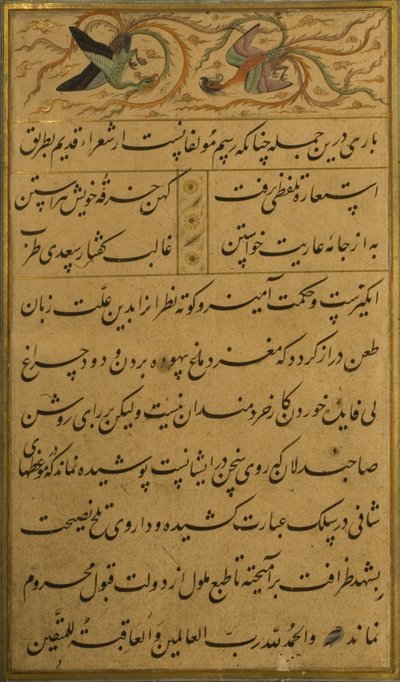 باری درین جمله چنانکه رسم مولفانست از شعراء قدیم بطریق
استعارة تلفظی برفت کهن خرقه خویش پیراستن
به از جامه عاریت خواستن غالب گفتار سعدی طرب
انگیزست و حکمت آمیز و کوته نظرانرا بدین علّت زبان
طعن دراز کردد که مغز دماغ بیهوده بردن و دود چراغ
بی فایده خوردن کار خردمندان نیست ولیکن بر رای روشن
صاحبدلان که روی سخن در ایشانست پوشیده نماند که در موعظهای
شافی در سلک عبارت کشیده و داروی تلخ نصیحت
بشهد ظرافت برآمیخته تا طبع ملول از دولت قبول محروم
نماند والحمدلله ربّ العالمین والعاقبة للمتّقین